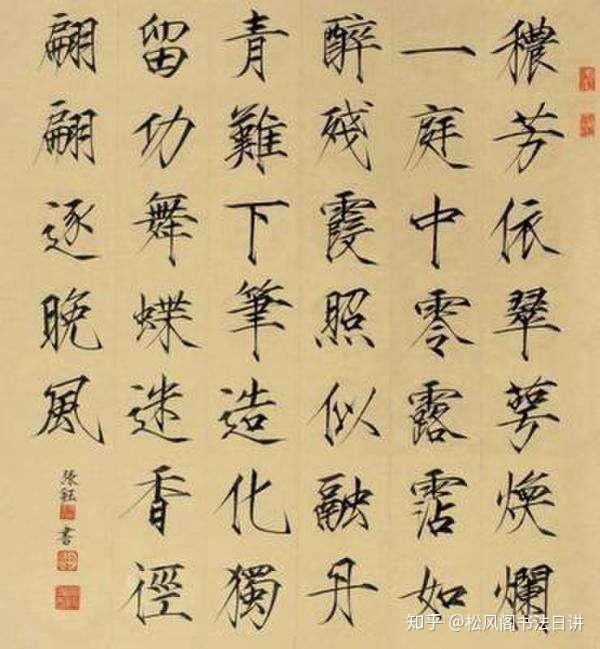 穠芳依翠萼煥爛
一庭中零露霑如
醉殘霞照似融丹
青難下筆造化獨
留功舞蝶迷香徑
翩翩逐晚風
張鈺書
知乎 @松风阁书法日讲